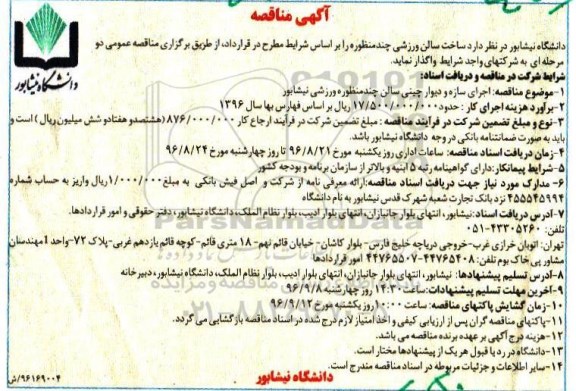 آگهی مناقصه
دانشگاه نیشابور
دانشگاه نیشابور در نظر دارد ساخت سالن ورزشی چندمنظوره را بر اساس شرایط مطرح در قرارداد، از طریق برگزاری مناقصه عمومی دو
مرحله ای به شرکتهای واجد شرایط واگذار نماید.
شرایط شرکت در مناقصه و دریافت اسناد:
۱-موضوع مناقصه: اجرای سازه و دیوار چینی سالن چندمنظوره ورزشی نیشابور
۲-برآورد هزینه اجرای کار: حدود ۱۷/۵۰۰/۰۰۰/۰۰۰ ریال بر اساس فهارس بها سال ۱۳۹۶
۳-نوع و مبلغ تضمین شرکت در فرایند مناقصه: مبلغ تضمین شرکت در فرآیند ارجاع کار ۸۷۶/۰۰۰/۰۰۰(هشتصدو هفتادو شش میلیون ریال) است و
باید به صورت ضمانتنامه بانکی در وجه دانشگاه نیشابور باشد.
۴-زمان دریافت اسناد مناقصه: ساعات اداری روز یکشنبه مورخ ۹۶/۸/۲۱ تا روز چهارشنبه مورخ ۹۶/۸/۲۴
۵-شرایط پیمانکار: دارای گواهینامه رتبه ۵ ابنیه و بالاتر از سازمان برنامه و بودجه کشور
۶-مدارک مورد نیاز جهت دریافت اسناد مناقصه: ارائه معرفی نامه از شرکت و اصل فیش بانکی به مبلغ ۱/۰۰۰/۰۰۰ریال واریز به حساب شماره
۴۵۵۴۵۹۹۴ نزد بانک تجارت شعبه شهرک قدس نیشابور به نام دانشگاه
۷-آدرس دریافت اسناد: نیشابور، انتهای بلوار جانبازان، انتهای بلوار ادیب، بلوار نظام الملک، دانشگاه نیشابور، دفتر حقوقی و امور قراردادها.
تلفن: ۰۵۱-۴۳۳۰۵۲۶۰
تهران: اتوبان خرازی غرب-خروجی دریاچه خلیج فارس- بلوار کاشان- خیابان قائم نهم- ۱۸ متری قائم-کوچه قائم یازدهم غربی-پلاک ۷۲-واحد ۱ مهندسان
مشاور پی خاک بوم تلفن: ۴۴۷۶۵۴۰۸-۴۴۷۶۵۵۰۷ امور قراردادها
۸-آدرس تسلیم پیشنهادها: نیشابور، انتهای بلوار جانبازان، انتهای بلوار ادیب، بلوار نظام الملک، دانشگاه نیشابور، دبیرخانه
۹-آخرین مهلت تسلیم پیشنهادات: ساعت ۱۴:۳۰ روز چهارشنبه ۹۶/۹/۸
۱۰-زمان گشایش پاکتهای مناقصه: ساعت ۱۰:۰۰ روز یکشنبه مورخ ۹۶/۹/۱۲
۱۱-پاکتهای مناقصه گران پس از ارزیابی کیفی و اخذ امتیاز لازم درج شده در اسناد مناقصه بازگشایی می گردد.
۱۲-هزینه درج آگهی بر عهده برنده مناقصه می باشد.
۱۳-دانشگاه در رد یا قبول هر یک از پیشنهادها مختار است.
۱۴-سایر اطلاعات و جزئیات مربوطه در اسناد مناقصه مندرج است.
دانشگاه نیشابور
۹۶۱۶۹۰۰۴/ش
ParsNamadData